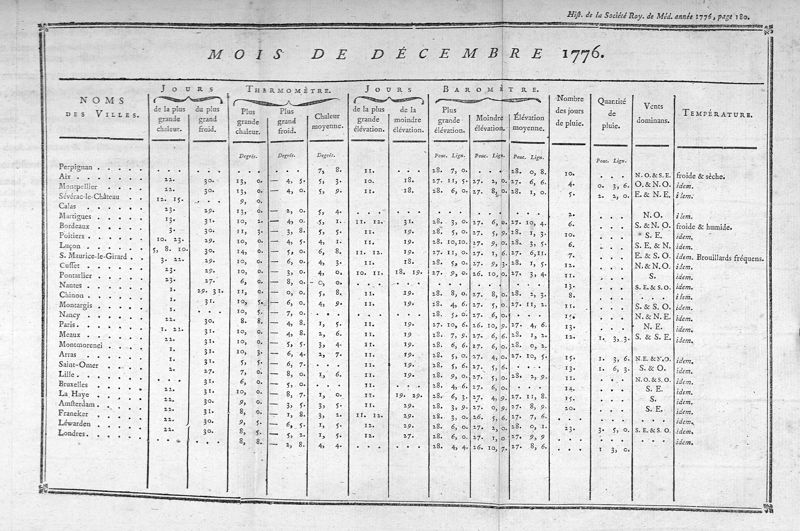 Hist. de la Société Roy. de Méd. année 1776, page 180.
MOIS DE DÉCEMBRE 1776.
NOMS DES VILLES.
JOURS
de la plus grande chaleur.
du plus grand froid.
THERMOMÈTRE.
Plus grande chaleur.
Plus grand froid.
Chaleur moyenne.
JOURS
de la plus grande élévation.
de la moindre élévation.
BAROMÈTRE.
Plus grande élévation.
Moindre élévation.
Élévation moyenne.
Nombre des jours de pluie.
Quantité de pluie.
Vents dominans.
TEMPÉRATURE.
Degrés. Degrés. Degrés. Pouc. Lign. Pouc. Lign. Pouc. Lign. Pouc. Lign.
Perpignan 7, 8. 11. 28. 7, 0. 28. 0, 8. 10. N.O. & S.E. froide & sèche.
Aix 22. 30. 13, 0. — 4, 5. 5, 3. 10. 18. 27. 11, 5. 27. 2, 0. 27. 6, 6. 4. 0. 3, 6. O. & N.O. idem.
Montpellier 22. 30. 13, 0. — 4, 0. 5, 9. 11. 18. 28. 6, 0. 27. 8, 0. 28. 1, 0. 5. 2. 2, 0. E. & N.E. idem.
Sévérac-le-Château 12. 15. 9, 0.
Calas 23. 29. 13, 0. — 2, 0. 5, 4. 2. N.O.
Martigues 13. 31. 10, 2. — 4, 0. 5, 1. 11. 12. 31. 28. 3, 0. 27. 6, 0. 27. 10, 4. 6. S. & N.O. froide & humide.
Bordeaux 30. 30. 11, 3. — 3, 8. 5, 5. 11. 19. 28. 5, 0. 27. 5, 9. 28. 1, 3. 10. S.E. idem.
Poitiers 10. 23. 29. 10, 0. — 4, 5. 4, 1. 11. 29. 28. 10, 10. 27. 9, 0. 28. 3, 5. 6. S.E. & N. idem.
Luçon 5. 8. 10. 30. 14, 0. — 5, 0. 6, 8. 11. 12. 19. 27. 11, 0. 27. 1, 6. 27. 6, 11. 7. E. & S.O. idem. Brouillards fréquens.
S. Maurice-le-Girard 3. 22. 29. 10, 0. — 6, 0. 4, 3. 11. 19. 28. 5, 0. 27. 9, 3. 28. 1, 5. 12. N. & N.O. idem.
Cusset 23. 29. 10, 0. — 3, 0. 4, 0. 10. 11. 18. 19. 27. 9, 0. 26. 10, 0. 27. 3, 4. 11. S. idem.
Pontarlier 23. 27. 6, 0. — 8, 0. 0, 0. 13. S.E. & S.O. idem.
Nantes 1. 29. 31. 11, 0. — 0, 0. 5, 8. 11. 19. 28. 8, 0. 27. 8, 0. 28. 2, 3. 8. idem.
Chinon 1. 31. 10, 5. — 6, 0. 4, 9. 11. 29. 28. 4, 6. 27. 5, 0. 27. 11, 2. 11. S. & S.O. idem.
Montargis 1. 10, 5. — 7, 0. 28. 5, 0. 27. 6, 0. 15. N. & N.E. idem.
Nancy 22. 30. 8, 8. — 4, 8. 1, 5. 11. 19. 27. 10, 6. 26. 10, 9. 27. 4, 6. 13. N.E. idem.
Paris 1. 22. 31. 10, 0. — 4, 8. 2, 6. 11. 19. 28. 7, 9. 27. 6, 6. 28. 1, 2. 12. 1. 3, 3. S. & S.E. idem.
Meaux 22. 30. 10, 0. — 5, 5. 3, 4. 11. 29. 28. 6, 6. 27. 6, 0. 28. 0, 2.
Montmorenci 1. 31. 10, 3. — 6, 4. 2, 7. 11. 19. 28. 5, 0. 27. 4, 0. 27. 10, 5. 15. 1. 3, 6. N.E. & N.O. idem.
Arras 1. 31. 5, 5. — 6, 7. 11. 19. 28. 5, 0. 27. 6, 0. 13. 1. 6, 3. S. & O. idem.
Saint-Omer 22. 27. 7, 0. — 8, 0. 1, 6. 11. 29. 28. 9, 0. 27. 5, 0. 28. 2, 9. 11. N.O. & S.O. idem.
Lille 22. 31. 6, 0. — 5, 0. 11. 28. 4, 6. 27. 6, 0. 14. S.E. idem.
Bruxelles 22. 31. 10, 0. — 8, 7. 1, 0. 11. 19. 29. 28. 6, 3. 27. 4, 9. 27. 11, 8. 15. S. idem.
La Haye 22. 30. 9, 0. — 3, 5. 3, 5. 11. 29. 28. 3, 9. 27. 0, 9. 27. 8, 9. 20. S.E. idem.
Amsterdam 22. 31. 8, 0. — 1, 8. 3, 2. 11. 12. 29. 28. 3, 0. 26. 5, 6. 27. 7, 6. idem.
Franeker 22. 30. 9, 5. — 6, 5. 1, 5. 12. 29. 28. 6, 0. 27. 1, 0. 28. 0, 1. 13. 3. 5, 0. S.E. & S.O. idem.
Léwarden 22. 30. 8, 5. — 5, 2. 1, 5. 12. 27. 28. 6, 0. 27. 1, 0. 27. 9, 9. idem.
Londres 8, 8. — 2, 8. 4, 4. 28. 4, 4. 26. 10, 7. 27. 8, 6. 1. 3, 0.